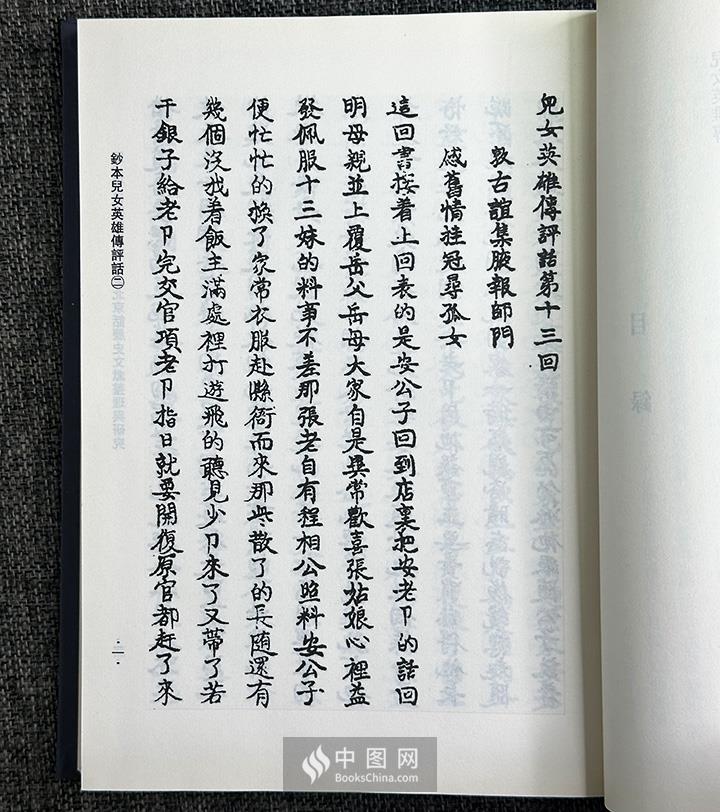 兒女英雄傳評話第十三回
敦古誼集腋報師門
感舊情挂冠尋孤女
這回書接着上回表的是安公子回到店裏把安老卩的話回
明母親並上覆岳父岳母大家自是異常歡喜張姑娘心裡益
發佩服十三妹的料事不差那張老自有程相公照料安公子
便忙忙的換了家常衣服赴縣衙而來那些散了的長隨還有
幾個沒找着飯主滿處裡打遊飛的聽見少卩來了又帶了若
干銀子給老卩完交官項老卩指日就要開復原官都赶了來
鈔本兒女英雄傳評話㈡
·一·
目錄
中图网
BooksChina.com